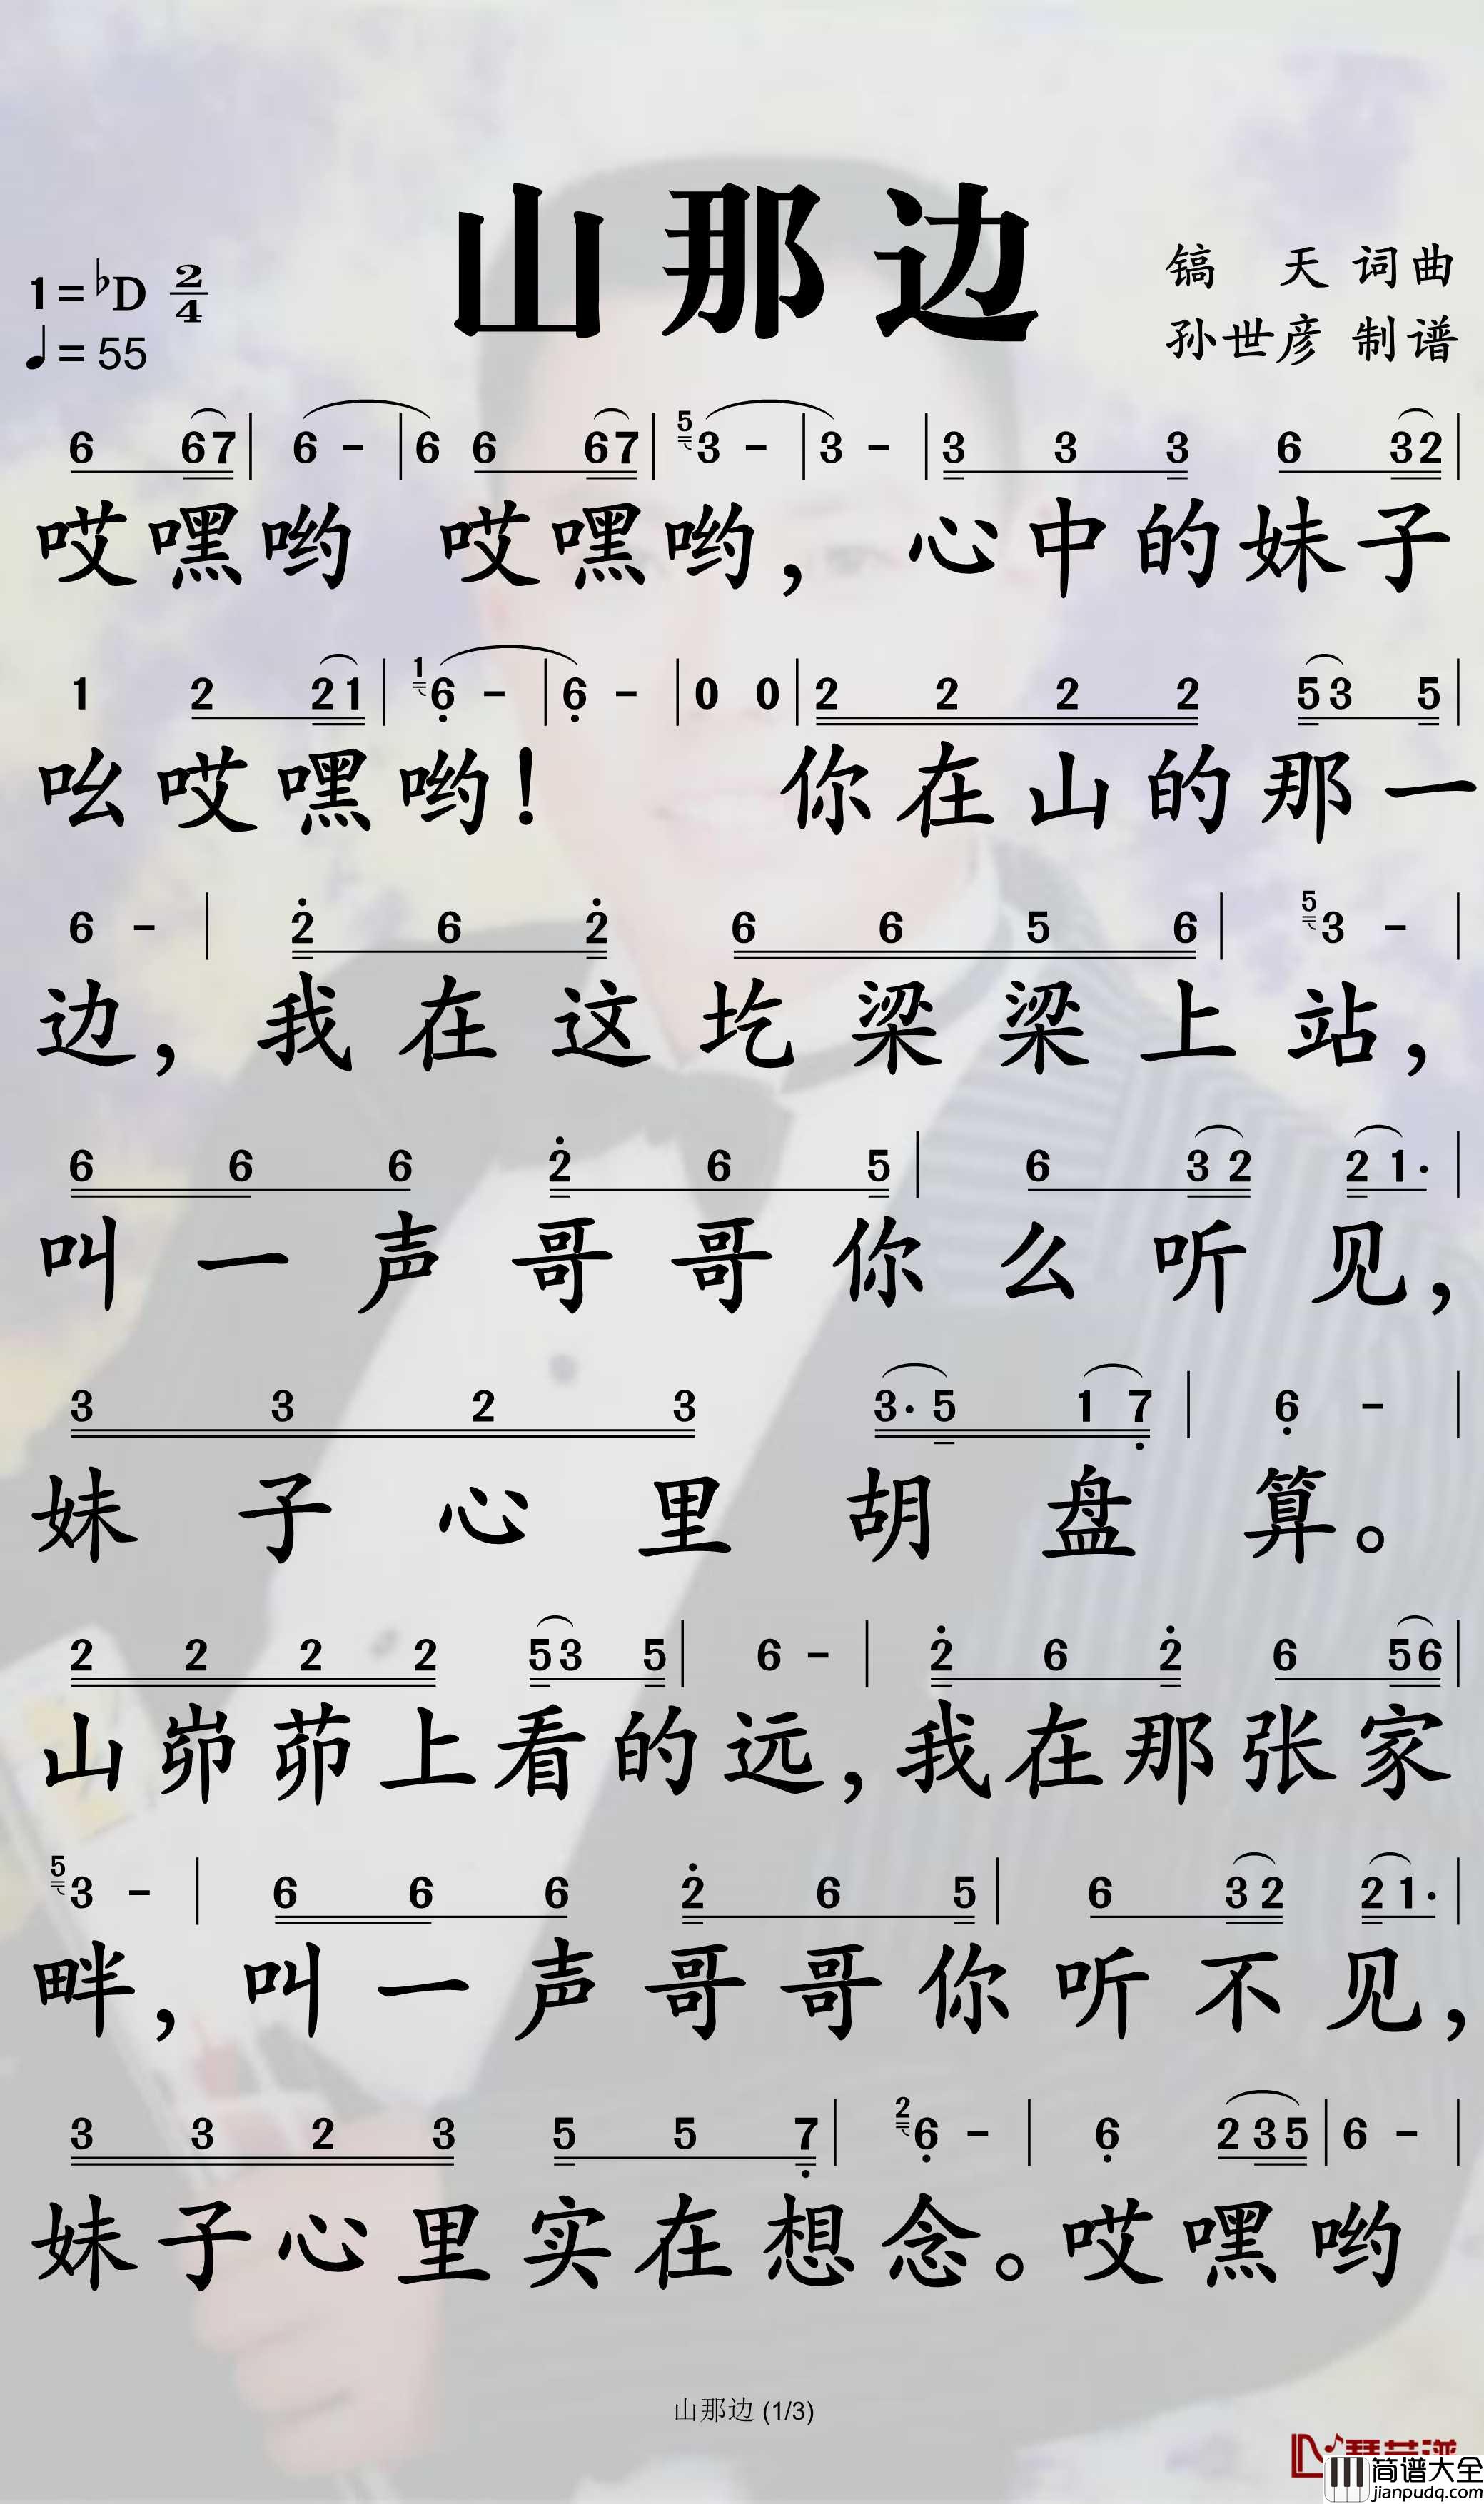 山那边
1=♭D 2/4
♩=55
镐 天 词曲
孙世彦 制谱
6 67 | 6 - | 6 6 67 | 5 3 - | 3 - | 3 3 3 6 32 |
哎嘿哟 哎嘿哟，心中的妹子
1 2 21 | 1 6̣ - | 6̣ - | 0 0 | 2 2 2 2 53 5 |
吆哎嘿哟！ 你在山的那一
6 - | 2̇ 6 2̇ 6 6 5 6 | 5 3 - |
边，我在这圪梁梁上站，
6 6 6 2̇ 6 5 | 6 32 21· |
叫一声哥哥你么听见，
3 3 2 3 3·5 17̣ | 6̣ - |
妹子心里胡盘算。
2 2 2 2 53 5 | 6 - | 2̇ 6 2̇ 6 56 |
山峁茆上看的远，我在那张家
5 3 - | 6 6 6 2̇ 6 5 | 6 32 21· |
畔，叫一声哥哥你听不见，
3 3 2 3 5 5 7̣ | 2 6̣ - | 6̣ 235 | 6 - |
妹子心里实在想念。哎嘿哟
山那边 (1/3)
琴艺谱
简谱大全
jianpudq.com